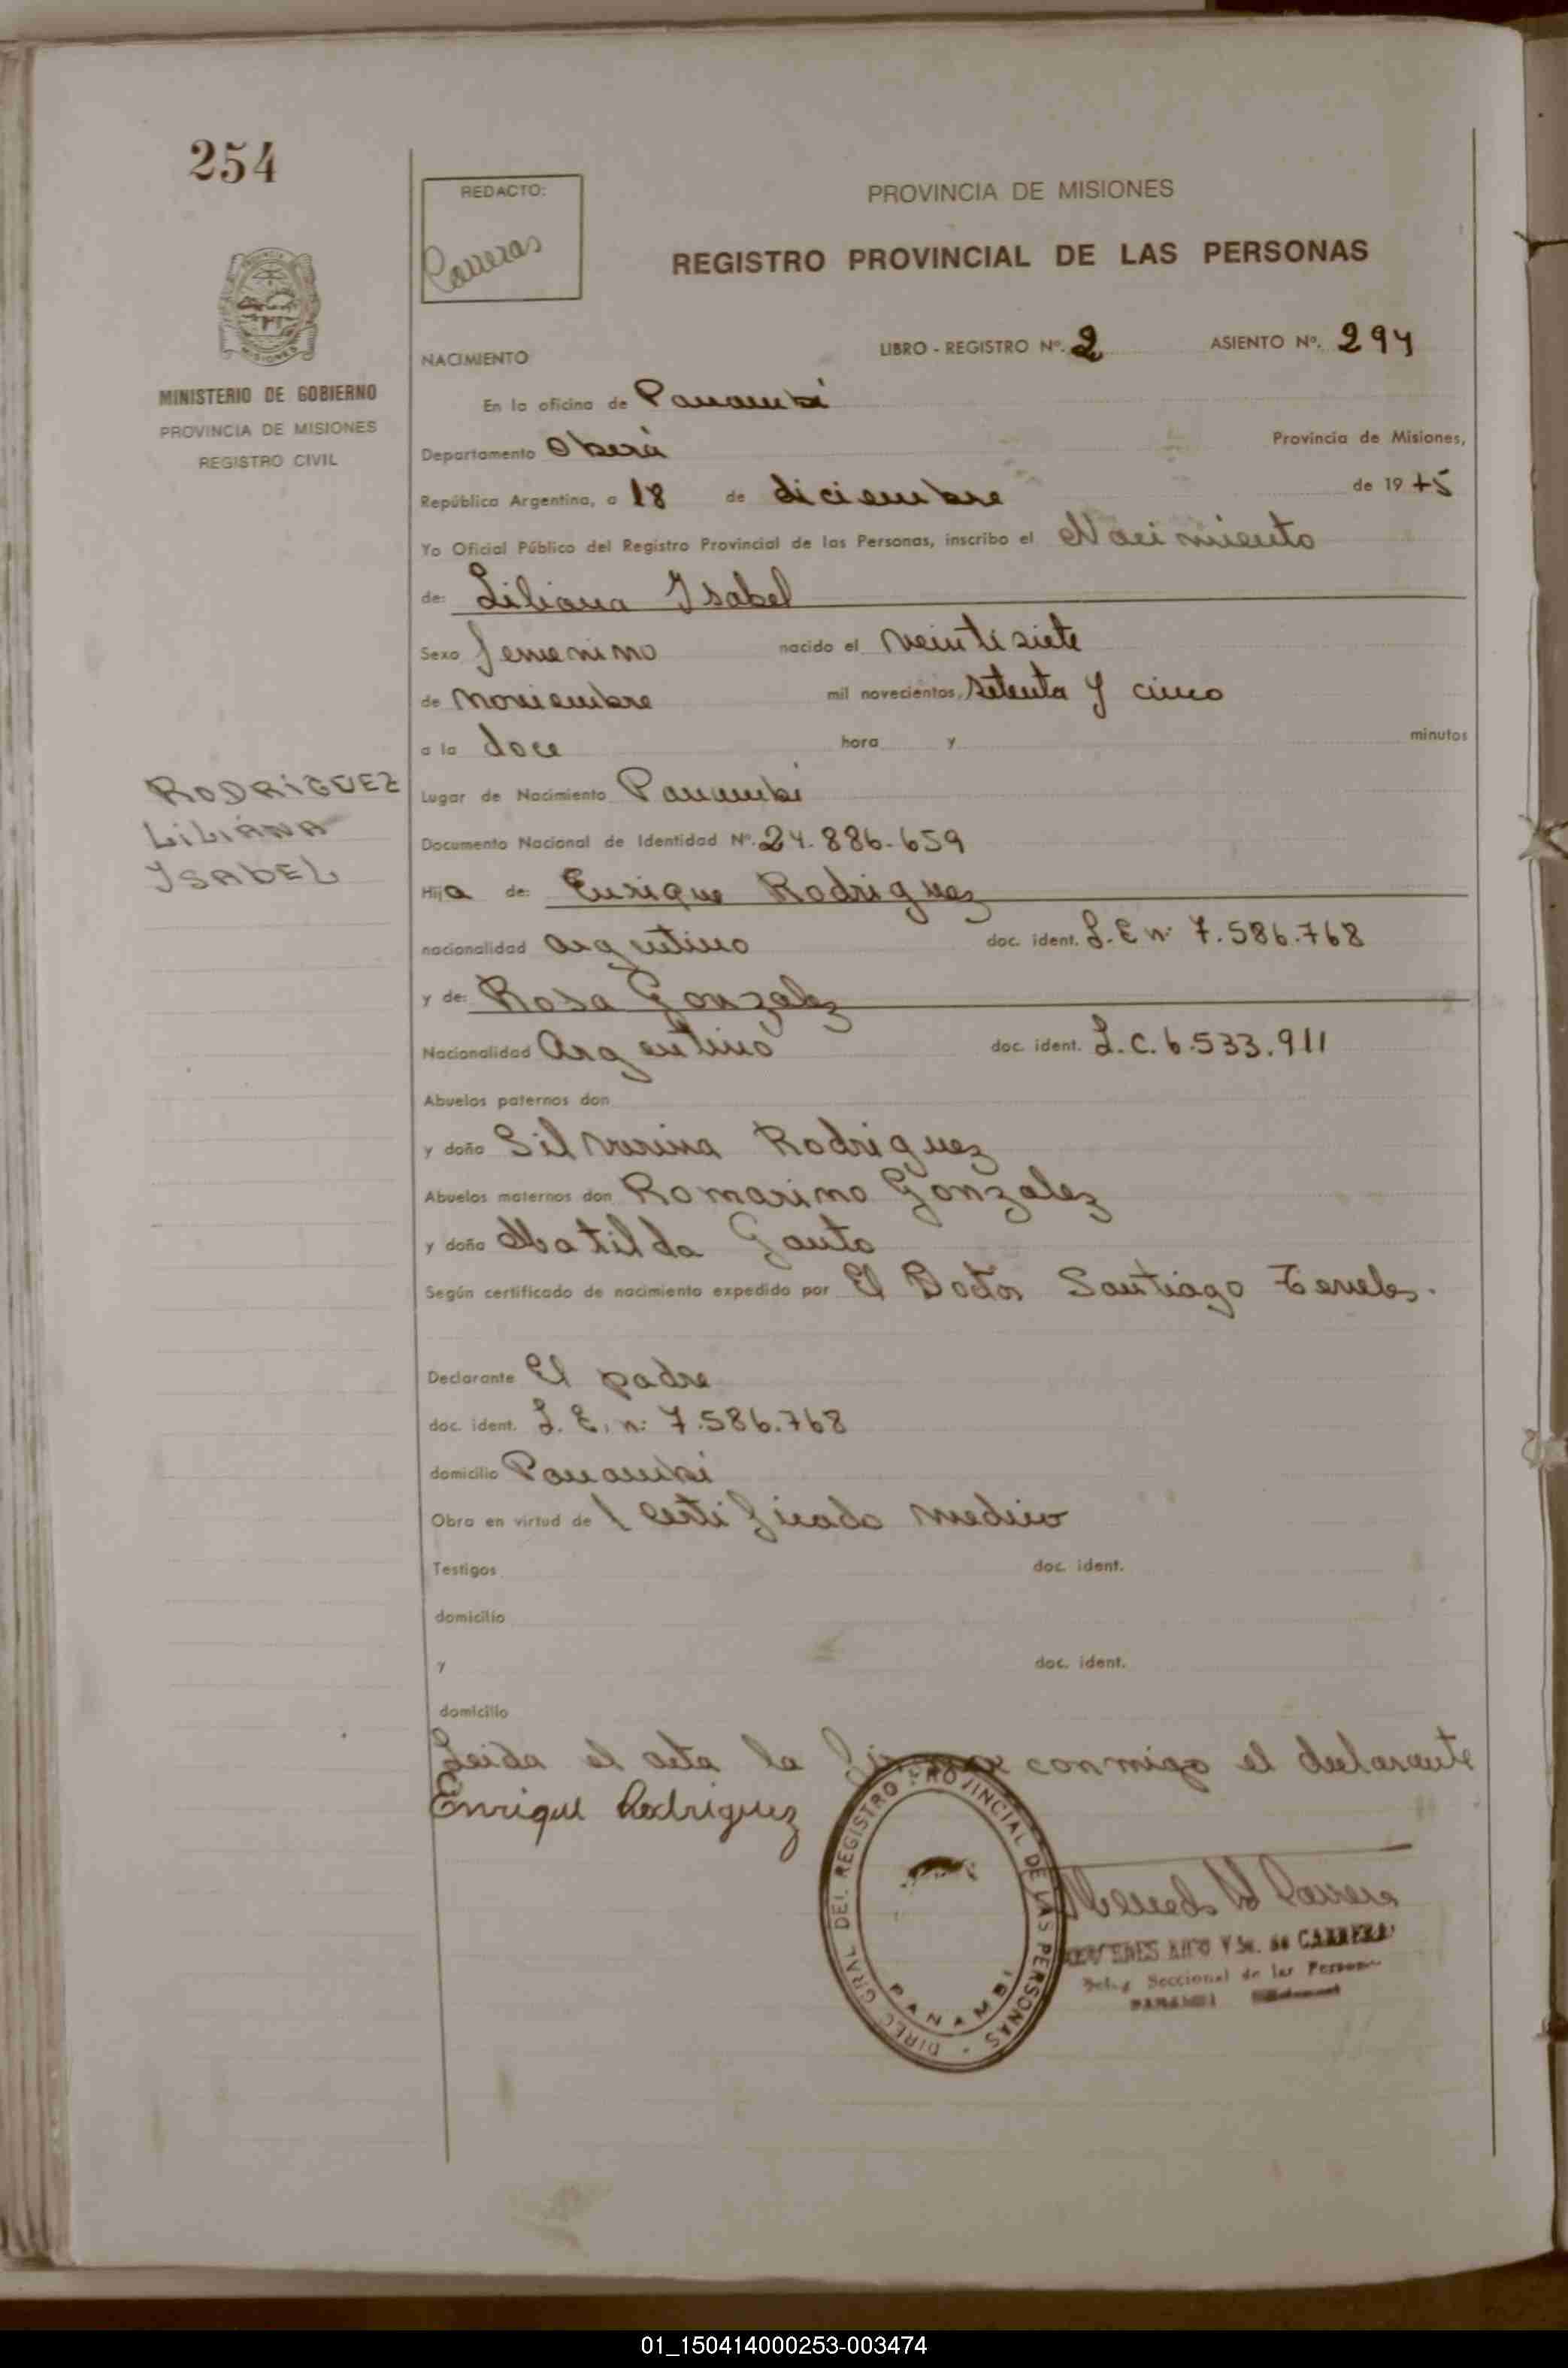 254
REDACTO:
Carreras
PROVINCIA DE MISIONES
REGISTRO PROVINCIAL DE LAS PERSONAS
MISIONES
MINISTERIO DE GOBIERNO
PROVINCIA DE MISIONES
REGISTRO CIVIL
NACIMIENTO
LIBRO - REGISTRO Nº. 2 ASIENTO Nº. 294
En la oficina de Panambí
Departamento Oberá Provincia de Misiones,
República Argentina, a 18 de diciembre de 19 75
Yo Oficial Público del Registro Provincial de las Personas, inscribo el Nacimiento
de: Liliana Ysabel
Sexo femenino nacido el veintisiete
de noviembre mil novecientos, setenta y cinco
a la doce hora y minutos
RODRIGUEZ
LILIANA
YSABEL
Lugar de Nacimiento Panambí
Documento Nacional de Identidad Nº. 24.886.659
Hija de: Enrique Rodriguez
nacionalidad argentino doc. ident. L.E nº 7.586.768
y de: Rosa Gonzalez
Nacionalidad Argentino doc. ident. L.C. 6.533.911
Abuelos paternos don
y doña Silvarina Rodriguez
Abuelos maternos don Romarino Gonzalez
y doña Matilda Gauto
Según certificado de nacimiento expedido por El Doctor Santiago
Declarante El padre
doc. ident. L.E. nº 7.586.768
domicilio Panambí
Obra en virtud de 1 certificado medico
Testigos doc. ident.
domicilio
y doc. ident.
domicilio
Leida el acta la firma conmigo el declarante
Enrique Rodriguez
DIREC. GRAL. DEL REGISTRO PROVINCIAL DE LAS PERSONAS
PANAMBI
de CARRERA
Seccional de las Personas
PANAMBI
01_150414000253-003474